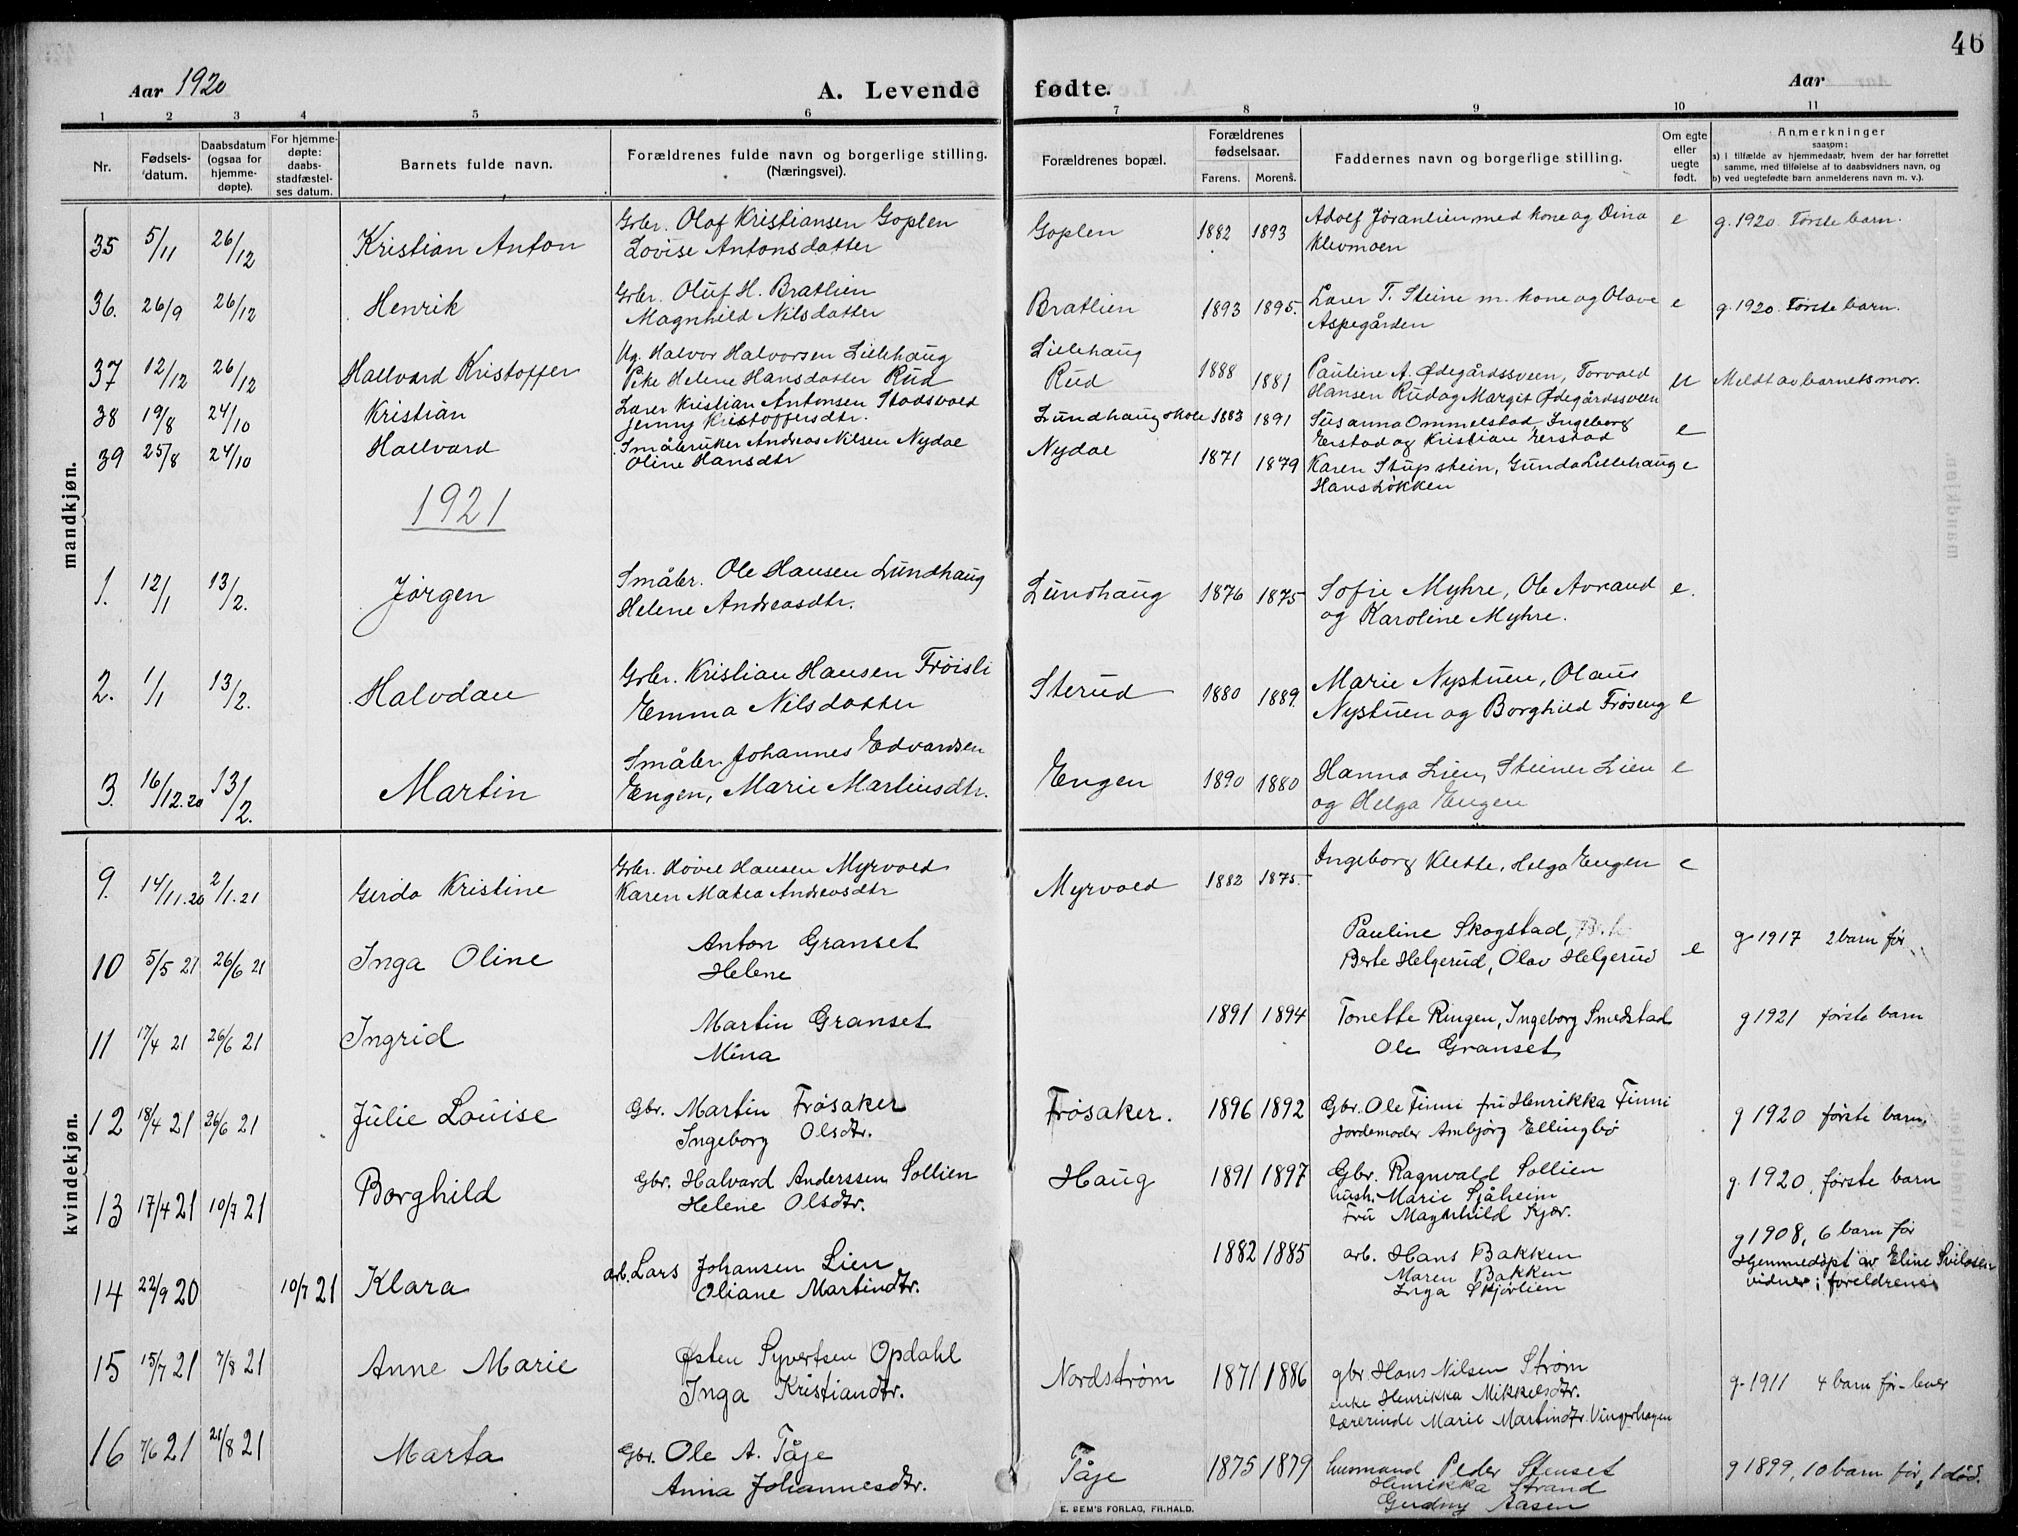 46
Aar 1920
A. Levende fødte.
Aar
1 2 3 4 5 6 7 8 9 10 11
Nr.
Fødsels-
datum.
Daabsdatum
(ogsaa for
hjemme-
døpte).
For hjemme-
døpte:
daabs-
stadfæstel-
ses datum.
Barnets fulde navn.
Forældrenes fulde navn og borgerlige stilling.
(Næringsvei).
Forældrenes bopæl.
Forældrenes
fødselsaar.
Farens. Morens.
Faddernes navn og borgerlige stilling.
Om egte
eller
uegte
født.
Anmerkninger
saasom:
a) i tilfælde av hjemmedaab, hvem der har forrettet
samme, med tilføielse af to daabsvidners navn, og
b) ved uegtefødte barn anmelderens navn m. v.).
mandkjøn.
35 5/11 26/12 Kristian Anton
Grbr. Olof Kristiansen Goplen
Lovise Antonsdatter
Goplen 1882 1893
Adolf Jøranlien med kone og Dina
Klevmoen
e g. 1920. Første barn.
36. 26/9 26/12 Henrik
Grbr. Oluf H. Bratlien
Magnhild Nilsdatter
Bratlien 1893 1895.
Lærer T. Steine m. kone og Olave
Aspegården
e g. 1920. Første barn.
37 12/12 26/12 Hallvard Kristoffer
Ug. Halvor Halvorsen Lillehaug
Pike Helene Hansdatter Rud
Lillehaug
Rud
1888 1881
Pauline A. Ødegårdssveen, Torvald
Hansen Rud og Margit Ødegårdssveen
u Meldt av barnets mor.
38 19/8 24/10 Kristian
Lærer Kristian Antonsen Stadsvold
Jenny Kristoffersdtr.
Lundhaug skole 1883 1891
Susanna Ommelstad, Ingeborg
Erstad og Kristian Erstad
e
39 25/8 24/10 Hallvard
Småbruker Andreas Nilsen Nydal
Oline Hansdtr
Nydal 1871 1879
Karen Stupstein, Gunda Lillehaug
Hans Løkken
e
1921
1. 12/1 13/2. Jørgen
Småbr. Ole Hansen Lundhaug
Helene Andreasdtr.
Lundhaug 1876 1875
Sofie Myhre, Ole Avraud
og Karoline Myhre.
e.
2. 1/1 13/2. Halvdan
Grbr. Kristian Hansen Frøisli
Emma Nilsdatter
Sterud 1880 1889.
Marie Nystuen, Olaus
Nystuen og Borghild Frøseng
e
3. 16/12.20 13/2. Martin
Småbr. Johannes Edvardsen
Engen, Marie Martinsdtr.
Engen 1890 1880
Hanna Lien, Steiner Lien
og Helga Engen
e
kvindekjøn.
9. 14/11.20 2/1.21 Gerda Kristine
Grbr. Hovel Hansen Myrvold
Karen Matea Andreasdtr
Myrvold 1882 1875.
Ingeborg Klette, Helga Engen
e
10 5/5 21 26/6 21 Inga Oline
Anton Granset
Helene
Pauline Skogstad,
Berte Helgerud, Olav Helgerud
e g 1917 2 barn før
11 17/4 21 26/6 21 Ingrid
Martin Granset
Mina
1891 1894
Tonette Ringen, Ingeborg Smedstad
Ole Granset
g 1921 første barn
12 18/4 21 26/6 21 Julie Louise
Gbr. Martin Frøsaker
Ingeborg Olsdtr.
Frøsaker. 1896 1892
Gbr. Ole Finni fru Henrikka Finni
Jordemoder Ambjørg Ellingbø
g 1920 første barn,
13 17/4 21 10/7 21 Borghild
Gbr. Halvard Anderssen Sollien
Helene Olsdtr.
Haug 1891 1897
Gbr. Ragnvald Sollien
hush. Marie Sjåheim
Fru Magnhild Kjær.
g. 1920, første barn
14 22/9 20 10/7 21 Klara
arb. Lars Johansen Lien
Oliane Martindtr.
1882 1885
arb. Hans Bakken
Maren Bakken
Inga Skjørlien
g 1908, 6 barn før
Hjemmedøpt av Eline Svilosen
vidner; foreldrene
15 15/7 21 7/8 21 Anne Marie
Østen Syvertsen Opdahl
Inga Kristiandtr.
Nordstrøm 1871 1886
gbr Hans Nilsen Strøm
enke Henrikka Mikkelsdtr.
lærerinde Marie Martindtr. Vingerhagen
g. 1911 4 barn før - lever
16 7/6 21 21/8 21 Marta
Gbr. Ole A. Tåje
Anna Johannesdtr.
Tåje 1875 1879
husmand Peder Stenset
Henrikka Strand
Gudny Aasen
g 1899, 10 barn før, 1 død.
E. SEM'S FORLAG, FR.HALD.